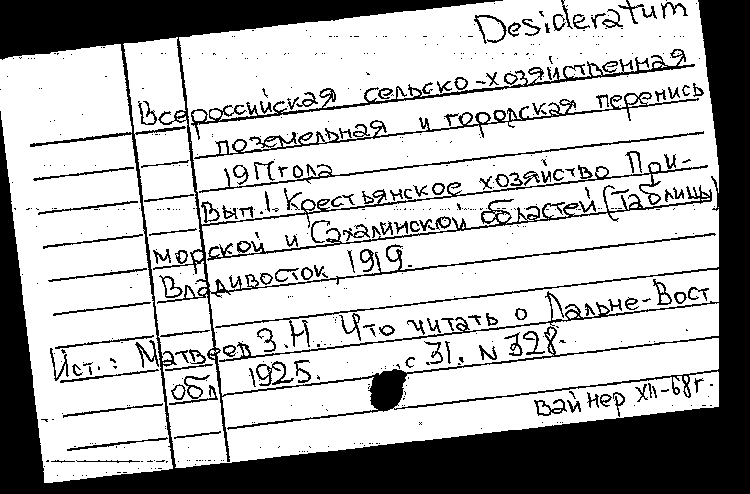 Desideratum
Всероссийская сельско-хозяйственная
поземельная и городская перепись
1917 года
Вып.1. Крестьянское хозяйство При-
морской и Сахалинской областей (Таблицы)
Владивосток, 1919.
Ист.: Матвеев З.Н. Что читать о Дальне-Вост
обл 1925. с.31. N 328.
Вайнер XII-68г.